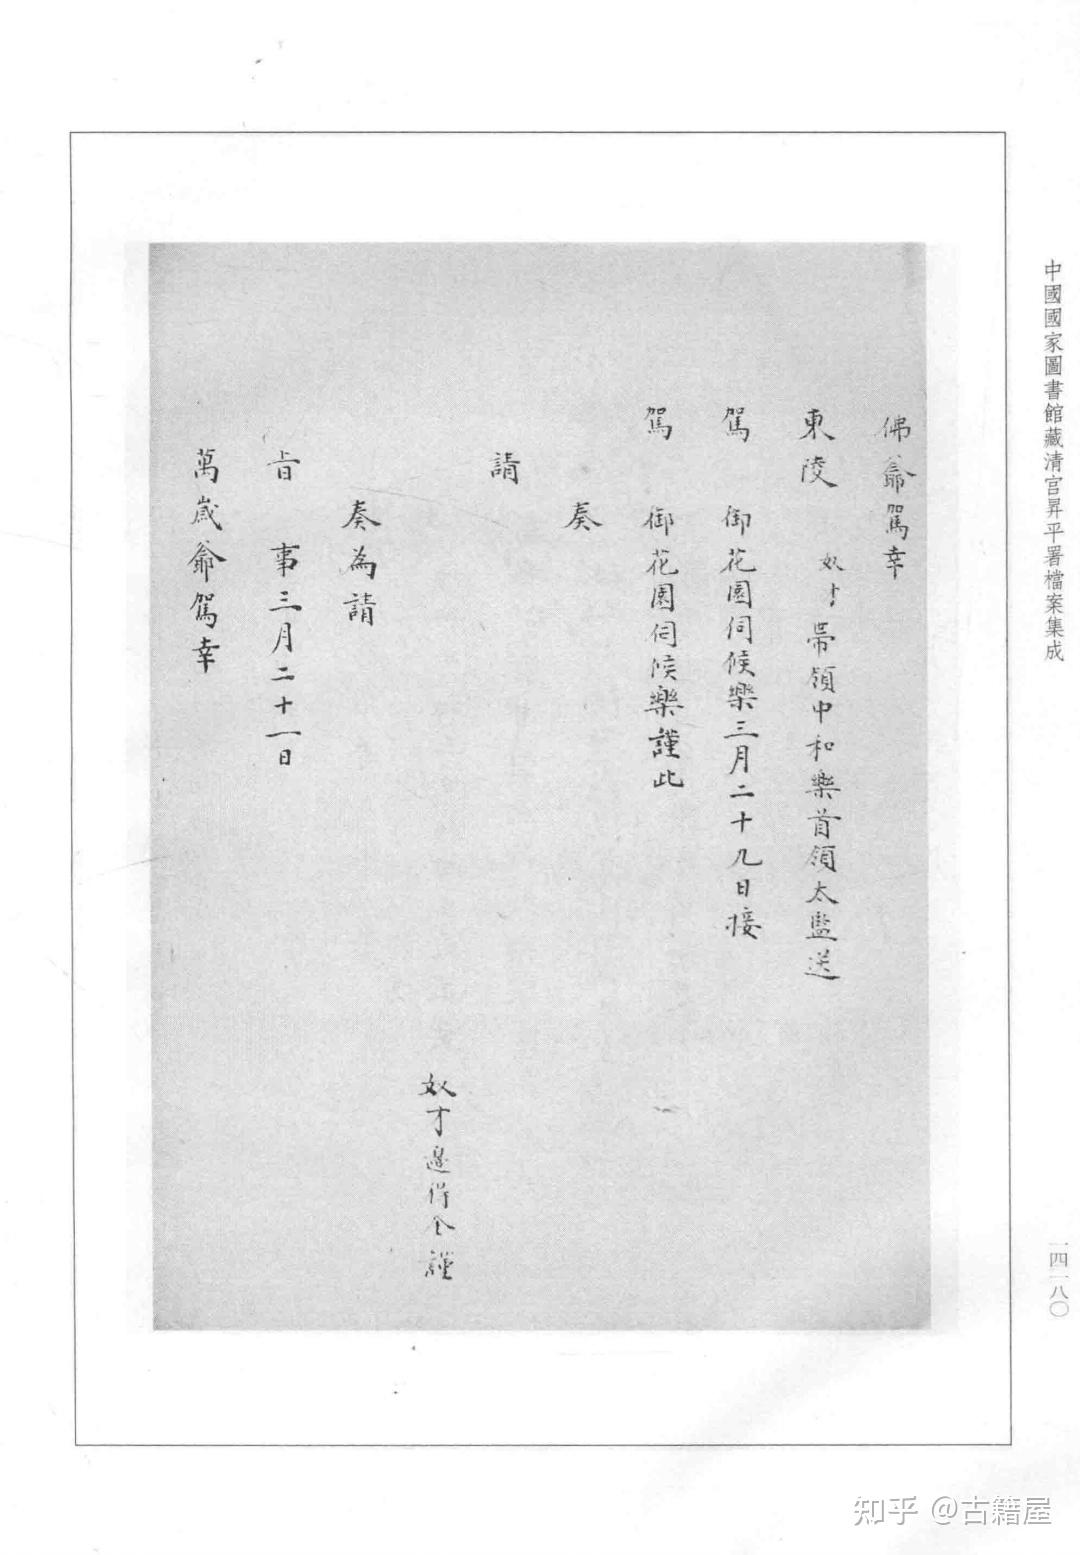 中國國家圖書館藏清宮昇平署檔案集成
佛爺駕幸
東陵 奴才帶領中和樂首領太監送
駕 御花園伺候樂三月二十九日接
駕 御花園伺候樂謹此
奏
請
奴才邊得全謹
奏為請
旨 事三月二十一日
萬歲爺駕幸
一四一八〇
知乎 @古籍屋